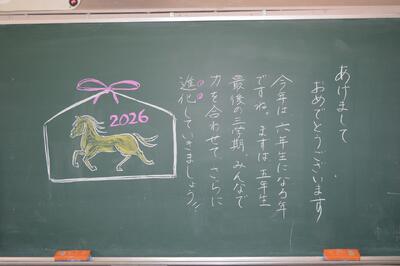 あけまして
おめでとうございます
今年は六年生になる年
ですね。まずは五年生
最後の三学期、みんなで
力を合わせて、さらに
進化していきましょう!!
2026